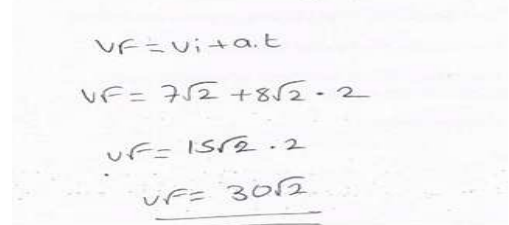 VF = Vi + a.t
VF = 7√2 + 8√2 . 2
VF = 15√2 . 2
VF = 30√2